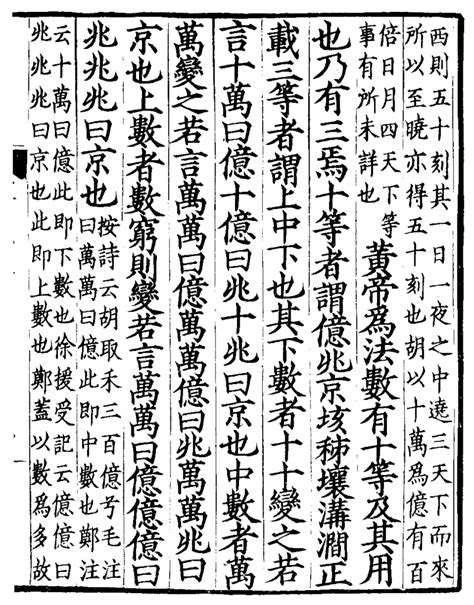 西則五十刻其一日一夜之中遶三天下而來
所以至曉亦得五十刻也胡以十萬爲億有百
倍日月四天下等
事有所未詳也
黃帝爲法數有十等及其用
也乃有三焉十等者謂億兆京垓秭壤溝澗正
載三等者謂上中下也其下數者十十變之若
言十萬曰億十億曰兆十兆曰京也中數者萬
萬變之若言萬萬曰億萬萬億曰兆萬萬兆曰
京也上數者數窮則變若言萬萬曰億億億曰
兆兆兆曰京也
按詩云胡取禾三百億兮毛注
曰萬萬曰億此即中數也鄭注
云十萬曰億此即下數也徐援受記云億億曰
兆兆兆曰京也此即上數也鄭蓋以數爲多故